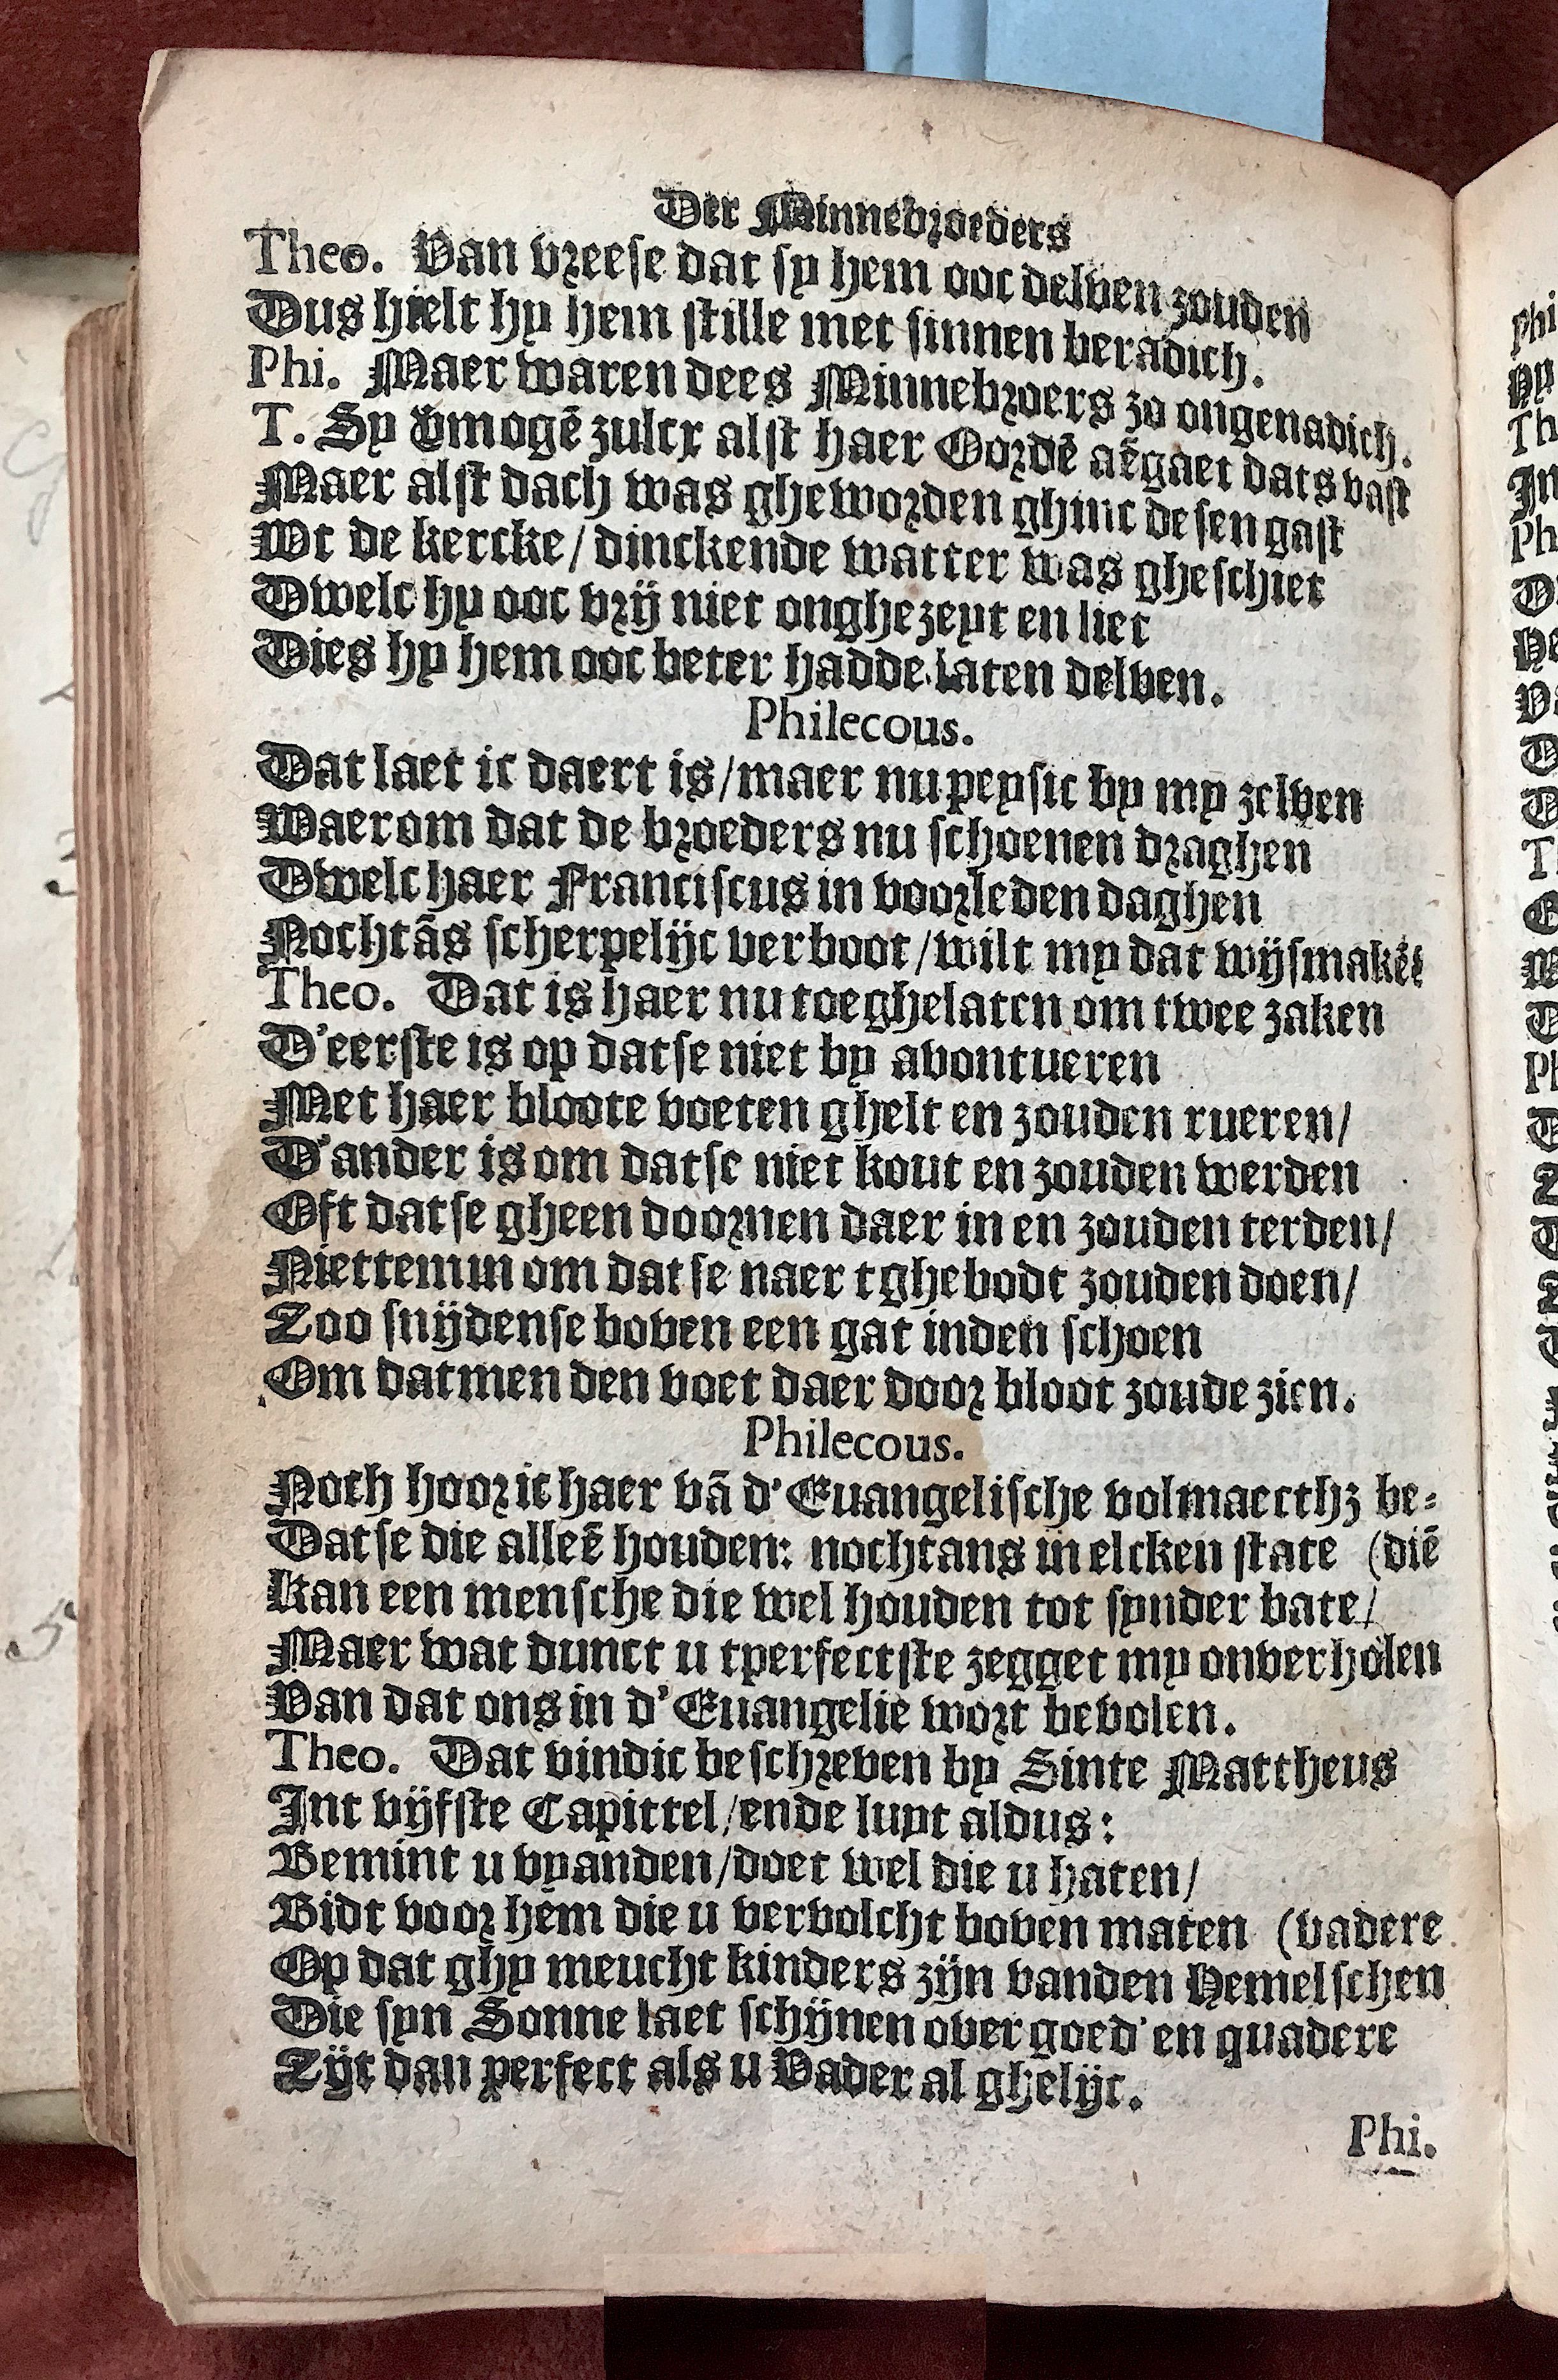 Der Minnebroeders
Theo. Van vreese dat sy hem ooc delven zouden
Dus hielt hy hem stille met sinnen beradich.
Phi. Maer waren dees Minnebroers zo ongenadich.
T. Sy v̄mogē zulcx alst haer Oordē aēgaet dats vast
Maer alst dach was gheworden ghinc desen gast
Wt de kercke/ dinckende watter was gheschiet
Dwelc hy ooc vrij niet onghezeyt en liet
Dies hy hem ooc beter hadde laten delven.
Philecous.
Dat laet ic daert is/maer nu peysic by my zelven
Waerom dat de broeders nu schoenen draghen
Dwelc haer Franciscus in voorleden daghen
Nochtās scherpelijc verboot/wilt my dat wijsmakē?
Theo. Dat is haer nu toeghelaten om twee zaken
D'eerste is op datse niet by avontueren
Met haer bloote voeten ghelt en zouden rueren/
D'ander is om datse niet kout en zouden werden
Oft datse gheen doornen daer in en zouden terden/
Niettemin om datse naer tghebodt zouden doen/
Zoo snijdense boven een gat inden schoen
Om datmen den voet daer door bloot zoude zien.
Philecous.
Noch hooric haer vā d'Euangelische volmaecthz be-
Datse die alleē houden: nochtans in elcken state (diē
Kan een mensche die wel houden tot synder bate/
Maer wat dunct u tperfectste zegget my onverholen
Van dat ons in d'Euangelie wort bevolen.
Theo. Dat vindic beschreven by Sinte Mattheus
Int vijfste Capittel/ende luyt aldus:
Bemint u vyanden/doet wel die u haten/
Bidt voor hem die u vervolcht boven maten (vadere
Op dat ghy meucht kinders zijn vanden Hemelschen
Die syn Sonne laet schijnen over goed' en quadere
Zijt dan perfect als u Vader al ghelijc.
Phi.